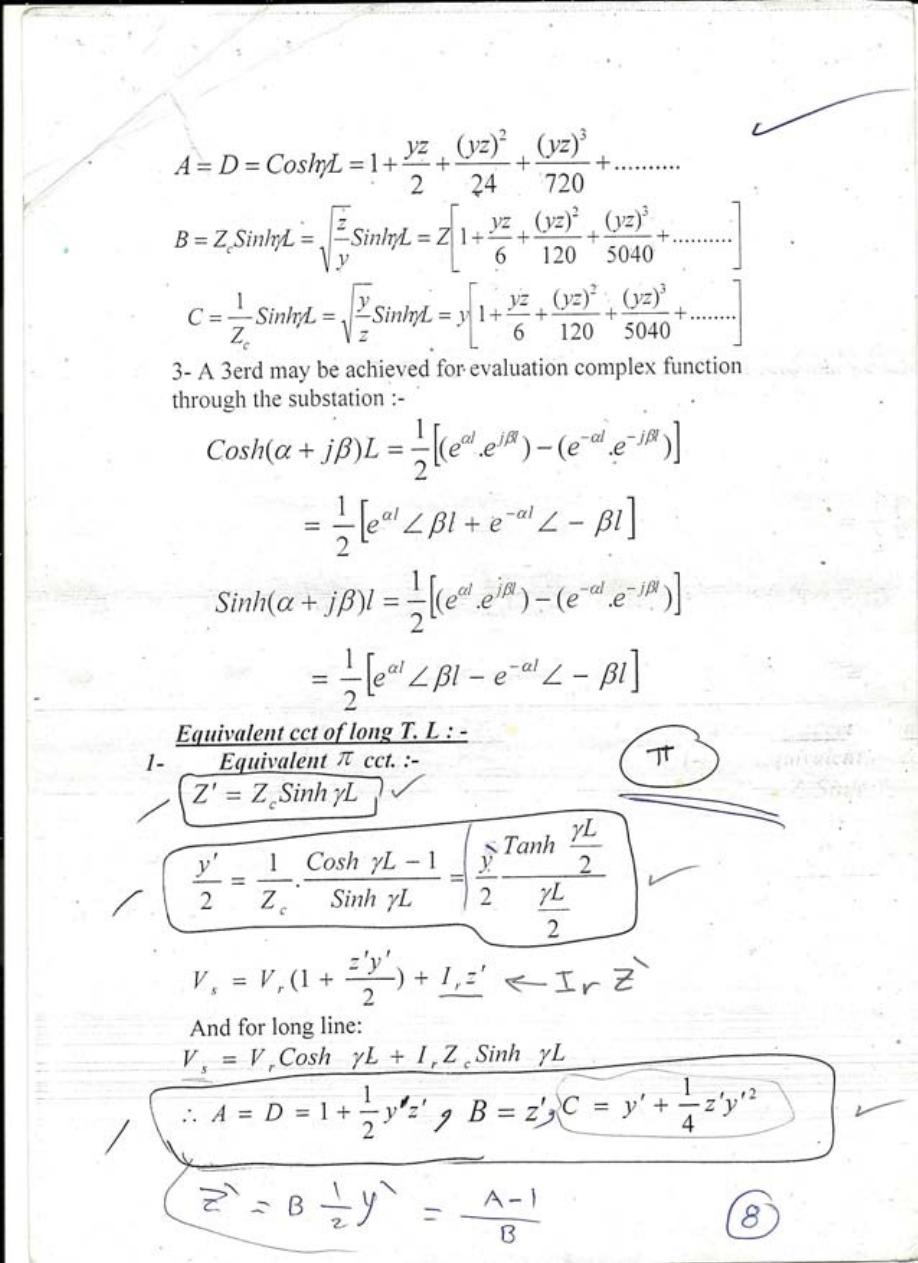 A = D = CoshγL = 1 + yz/2 + (yz)²/24 + (yz)³/720 + ..........
B = Z_c SinhγL = √(z/y) SinhγL = Z[1 + yz/6 + (yz)²/120 + (yz)³/5040 + ..........]
C = 1/Z_c SinhγL = √(y/z) SinhγL = y[1 + yz/6 + (yz)²/120 + (yz)³/5040 + ........]
3- A 3erd may be achieved for evaluation complex function
through the substation :-
Cosh(α + jβ)L = 1/2[(e^αl .e^jβl) − (e^−αl .e^−jβl)]
= 1/2[e^αl ∠ βl + e^−αl ∠ − βl]
Sinh(α + jβ)l = 1/2[(e^αl .e^jβl) − (e^−αl .e^−jβl)]
= 1/2[e^αl ∠ βl − e^−αl ∠ − βl]
Equivalent cct of long T. L : -
1- Equivalent π cct. :-
π
Z' = Z_c Sinh γL
y'/2 = 1/Z_c . (Cosh γL − 1)/(Sinh γL) = y/2 (Tanh γL/2)/(γL/2)
V_s = V_r(1 + z'y'/2) + I_r z' ← Ir Z`
And for long line:
V_s = V_r Cosh γL + I_r Z_c Sinh γL
∴ A = D = 1 + 1/2 y'z' , B = z', C = y' + 1/4 z'y'²
Z` = B 1/2 y` = (A-1)/B
8